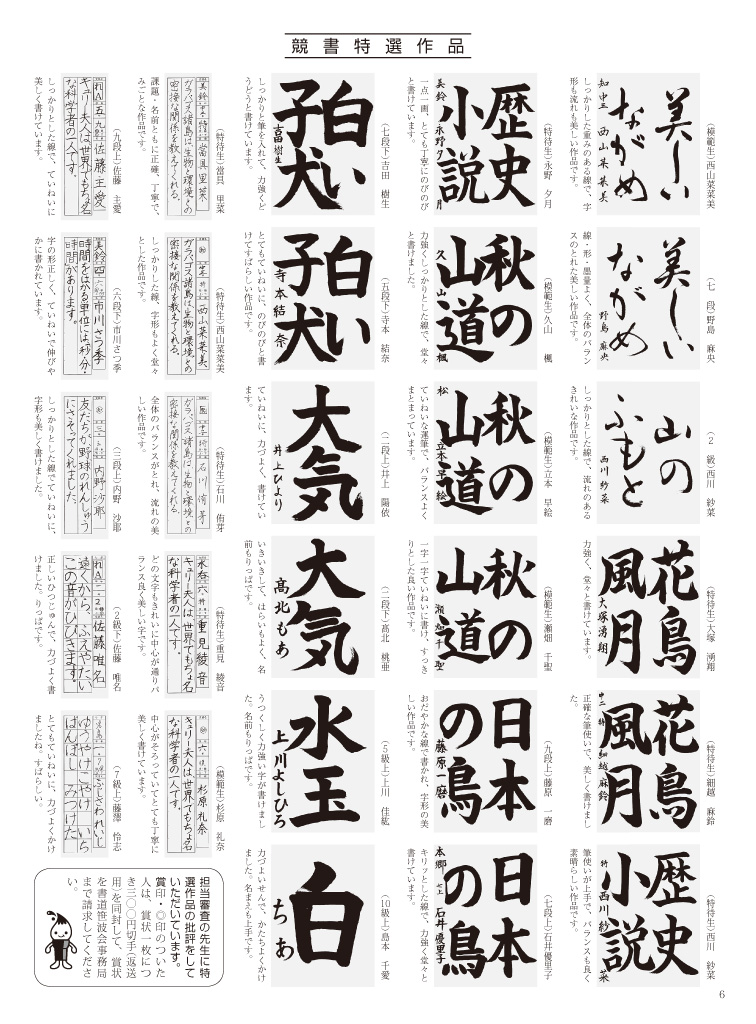 競書特選作品
(模範生)西山菜菜美
美しい
ながめ
知中三
西山菜菜美
しっかりした重みのある線で、字
形も流れも美しい作品です。
(七 段)野島 麻央
美しい
ながめ
野島 麻央
線・形・墨量よく、全体のバラン
スのとれた美しい作品です。
(2 級)西川 紗菜
山の
ふもと
西川 紗菜
しっかりとした線で、流れのある
きれいな作品です。
(特待生)大塚 湧翔
花鳥
風月
大塚湧翔
力強く、堂々と書けています。
(特待生)細越 麻鈴
花鳥
風月
中二 特 細越麻鈴
正確な筆使いで、美しく書けまし
た。
(特待生)西川 紗菜
歴史
小説
特 西川 紗菜
筆使いが上手で、バランスも良く
素晴らしい作品です。
(特待生)永野 夕月
歴史
小説
美鈴 永野夕月
一点一画、とても丁寧にのびのび
と書けています。
(模範生)久山 楓
秋の
山道
久山 楓
力強くしっかりとした線で、堂々
と書けました。
(模範生)立本 早絵
秋の
山道
松 立本早絵
ていねいな運筆で、バランスよく
まとまっています。
(模範生)瀬畑 千聖
秋の
山道
一字一字ていねいに書け、すっき
りとした良い作品です。
(九段上)藤原 一磨
日本
の鳥
藤原一磨
おだやかな線で書かれ、字形の美
しい作品です。
(七段上)石井優里子
日本
の鳥
本郷 七上 石井優里子
キリッとした線で、力強く堂々と
書けています。
(七段下)吉田 樹生
白い
子犬
吉田樹生
しっかりと筆を入れて、力強くど
うどうと書けています。
(五段下)寺本 結奈
白い
子犬
寺本結奈
とてもていねいに、のびのびと書
けてすばらしい作品です。
(二段上)井上 陽依
大気
井上ひより
ていねいに、力づよく、書けてい
ます。
(二段下)髙北 桃亜
大気
髙北もあ
いきいきして、はらいもよく、名
前もりっぱです。
(5級上)上川 佳紘
水玉
上川よしひろ
うつくしく力強い字が書けまし
た。名前もりっぱです。
(10級上)島本 千愛
白
ちあ
力づよいせんで、かたちよくかけ
ました。名まえも上手です。
(特待生)當具 里菜
美鈴
當具里菜
ガラパゴス諸島は生物と環境との
密接な関係を教えてくれる。
課題・名前ともに正確、丁寧で、
みごとな作品です。
(特待生)西山菜菜美
西山菜菜美
ガラパゴス諸島は生物と環境との
密接な関係を教えてくれる。
しっかりした線、字形もよく堂々
とした作品です。
(特待生)石川 侑芽
石川 侑芽
ガラパゴス諸島は生物と環境との
密接な関係を教えてくれる。
全体のバランスがとれ、流れの美
しい作品です。
(特待生)重見 綾音
重見綾音
キュリー夫人は世界でもちょ名
な科学者の一人です。
どの文字もきれいに中心が通りバ
ランス良く美しい字です。
(模範生)杉原 礼奈
杉原礼奈
キュリー夫人は世界でもちょ名
な科学者の一人です。
中心がそろっていてとても丁寧に
美しく書けています。
(九段上)佐藤 主愛
佐藤主愛
キュリー夫人は世界でもちょ名
な科学者の一人です。
しっかりとした線で、ていねいに
美しく書けています。
(六段下)市川さつ季
美鈴 四
市川さつ季
時間をはかる単位には、秒・分・
時間があります。
字の形正しく、ていねいで伸びや
かに書かれています。
(三段上)内野 沙耶
内野沙耶
友だちが野球のれんしゅう
にさそってくれました。
しっかりとした線でていねいに、
字形も美しく書けました。
(2級下)佐藤 唯名
佐藤唯名
遠くから、ふえやたい
この音がひびきます。
正しいひつじゅんで、力づよく書
けました。りっぱです。
(7級上)藤澤 怜志
ふじさわれいじ
ゆうやけこやけ いち
ばんぼし みつけた
とてもていねいに、力づよくかけ
ましたね。すばらしい。
担当審査の先生に特
選作品の批評をして
いただいています。
賞印・◎印のついた
人は、賞状一枚につ
き三〇〇円切手(返送
用)を同封して、賞状
を書道笹波会事務局
まで請求してくださ
い。
6